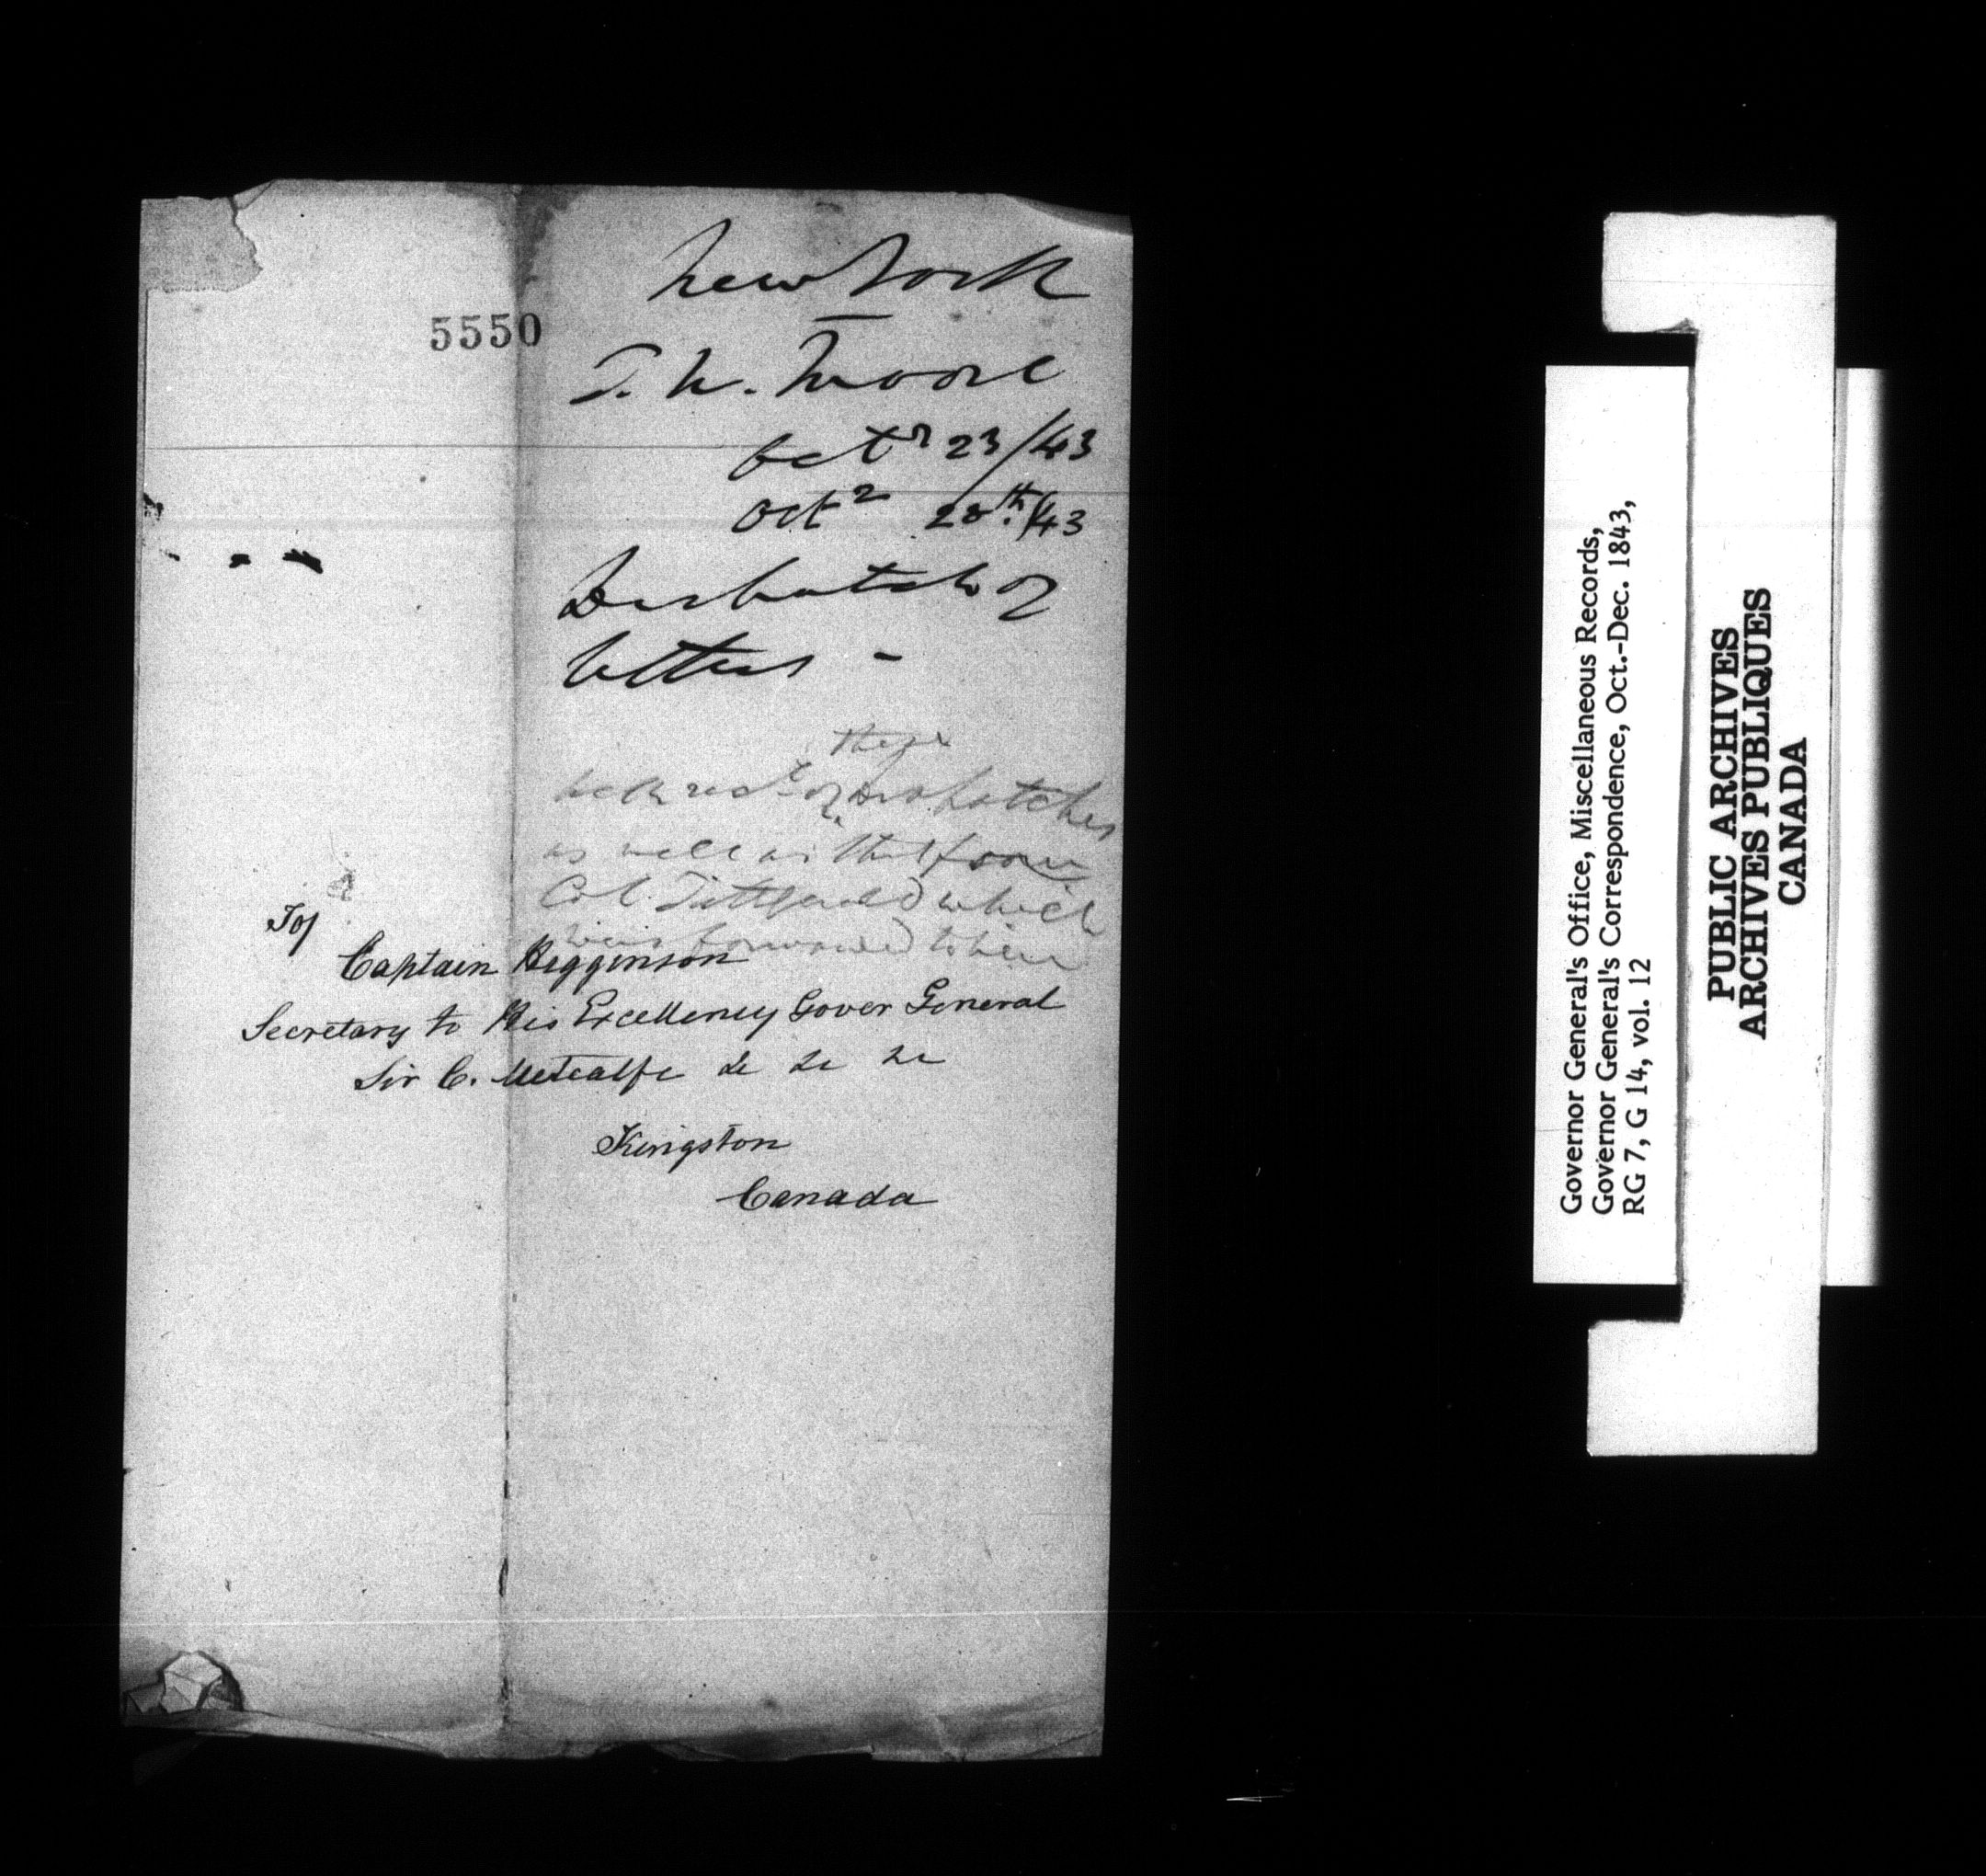 5550
New York
T. W. Moore
Octr 23/43
Octr 28th/43
Despatch of
letters -
these
ack rect of Despatches
as well as that from
Col. which
was forwarded to him
To/
Captain Higginson
Secretary to His Excellency Gover General
Sir C. Metcalfe &c &c &c
Kingston
Canada
Governor General's Office, Miscellaneous Records,
Governor General's Correspondence, Oct.-Dec. 1843,
RG 7, G 14, vol. 12
PUBLIC ARCHIVES
ARCHIVES PUBLIQUES
CANADA